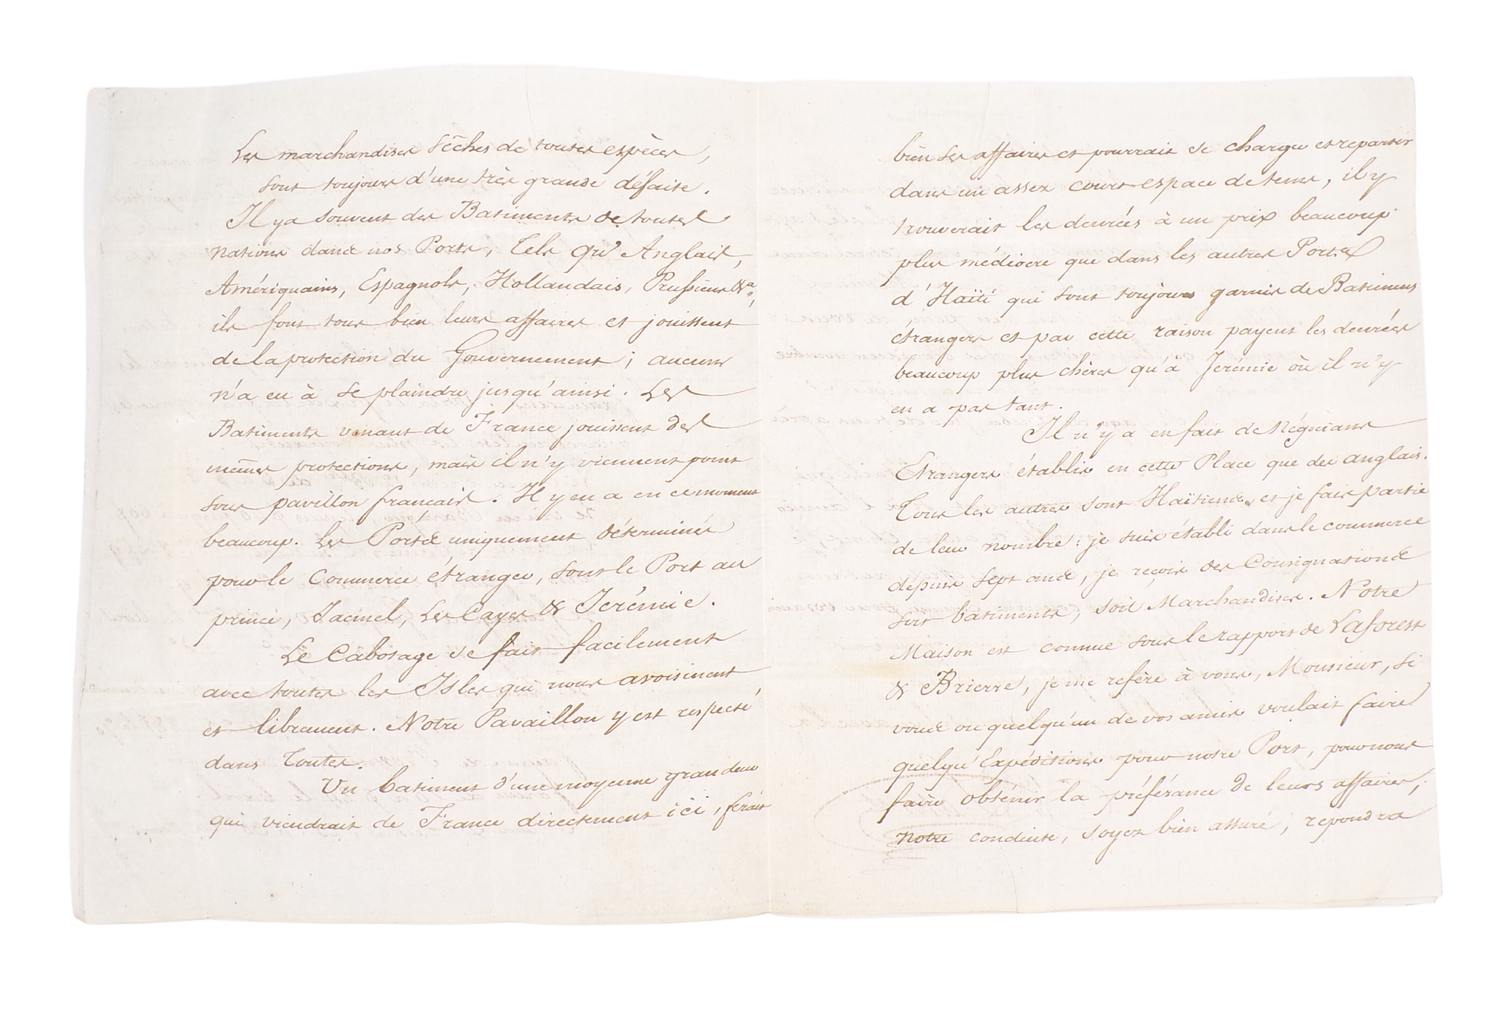 Les marchandises sêches de toutes espèces,
sont toujours d'une très grande défaite.
Il y a souvent des Batiments de toutes
nations dans nos Ports, Tels qu'Anglais,
Amériquains, Espagnols, Hollandais, Prussiens &a,
ils font tous bien leurs affaires et jouissent
de la protection du Gouvernement; aucuns
n'a eu à se plaindre jusqu'ainsi. Les
Batiments venant de France jouissent des
mêmes protections, mais il n'y viennent point
sous pavillon français. Il y en a en ce moment
beaucoup. Les Ports uniquement déterminés
pour le Commerce étranger, sont le Port au
prince, Jacmel, Les Cayes & Jérémie.
Le Cabotage se fait facilement
avec toutes les Isles qui nous avoisinent
et librement. Notre Pavaillon y est respecté
dans Toutes.
Un batiment d'une moyenne grandeur
qui viendrait de France directement ici, ferait
bien ses affaires et pourrait se charger et repartir
dans un assez court espace de tems, il y
trouverait les denrées à un prix beaucoup
plus médiocre que dans les autres Ports
d'Haïti qui sont toujours garnis de Batimens
étrangers et par cette raison payent les denrées
beaucoup plus chères qu'à Jérémie où il n'y
en a pas tant.
Il n'y a en fait de Négocians
Etrangers établis en cette Place que des anglais.
Tous les autres sont Haïtiens et je fais partie
de leur nombre: je suis établi dans le commerce
depuis sept ans, je reçois des Consignations
soit batiments, soit Marchandises. Notre
Maison est connue sous le rapport de Laforest
& Brierre, je me refère à vous, Monsieur, si
vous ou quelqu'un de vos amis voulait faire
quelqu'Expéditions pour notre Port, pour nous
faire obtenir la préférance de leurs affaires;
notre conduite, soyez bien assuré, repondra